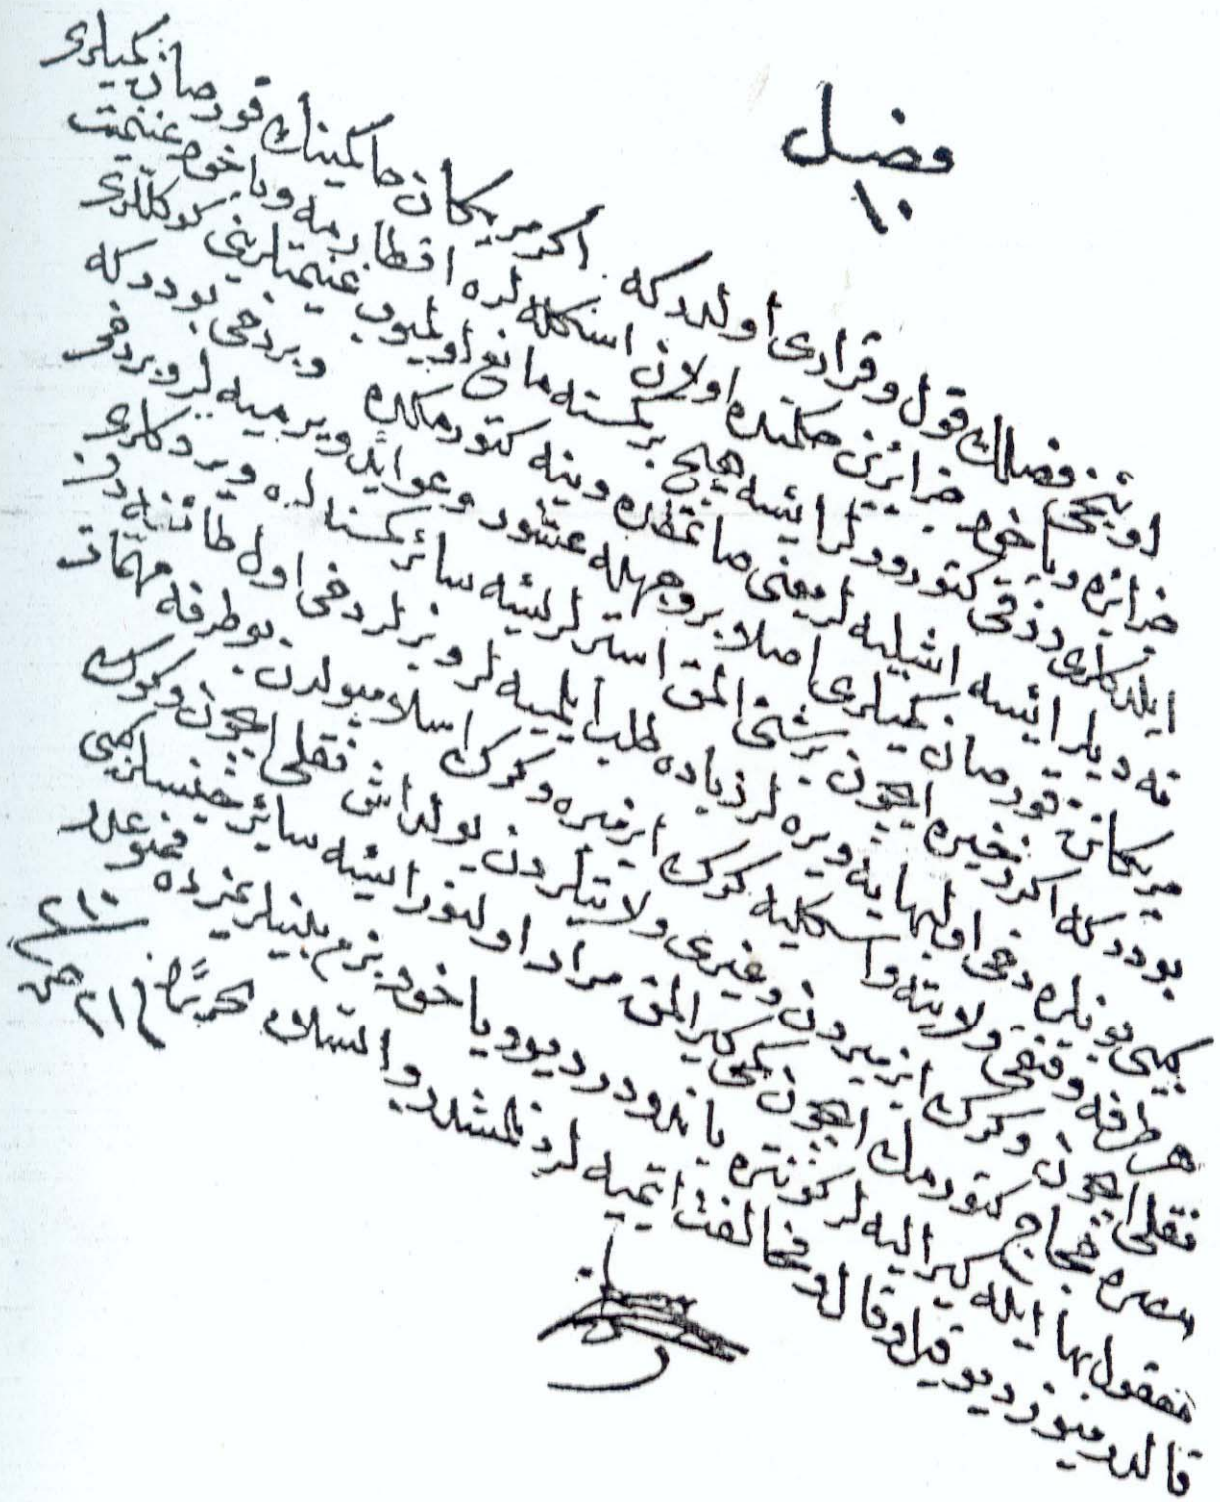 فصل
١٠
اونجى فصلك قول وقرارى اولدركه اكر مريكان حاكمينك قورصان كميلرى
جزائره وياخود جزائرين حكمنده اولان اسكله لره اقطارمه وياخود غنيمت
ايلدكلرى رزقى كتورورلر ايسه هيچ بر كمسنه مانع اولميوب غنيمتلرينى كوكللرى
نه ديلر ايسه اشليه لر يعنى صاتمقده وينه كتورمكده وبردخى بودركه
مريكان قورصان كميلرى اصلا بر وجهله عشور وعوايد ويرميه لر وبردخى
بودركه اكر ذخيره ايچون برشى المق استرلر ايسه سائر كمسنه لره ويردكلرى
كبى بونلره دخى اول بهايه ويره لر زياده طلب ايلميه لر وبزلر دخى اول طائفه دن
هر طرفه وقنغى ولايته واسكليه كرك ازميره وكرك اسلامبولدن بو طرفه مهمات
نقلى ايچون وكرك ازميردن وغيرى ولايتلردن يولداش نقلى ايچون وكرك
مصره حجاج كتورمك ايچون كمى كيرالمق مراد اولنور ايسه سائر جنسلر كبى
معقول بها ايله كير اليه لر كونتره باندودر ديو وياخود بزم ممنوعدر
قالدرميوز ديو قيل وقالدر مخالفت ايتميه لر دنلمشدر والسلام تحريرا فى ٢١ صفر